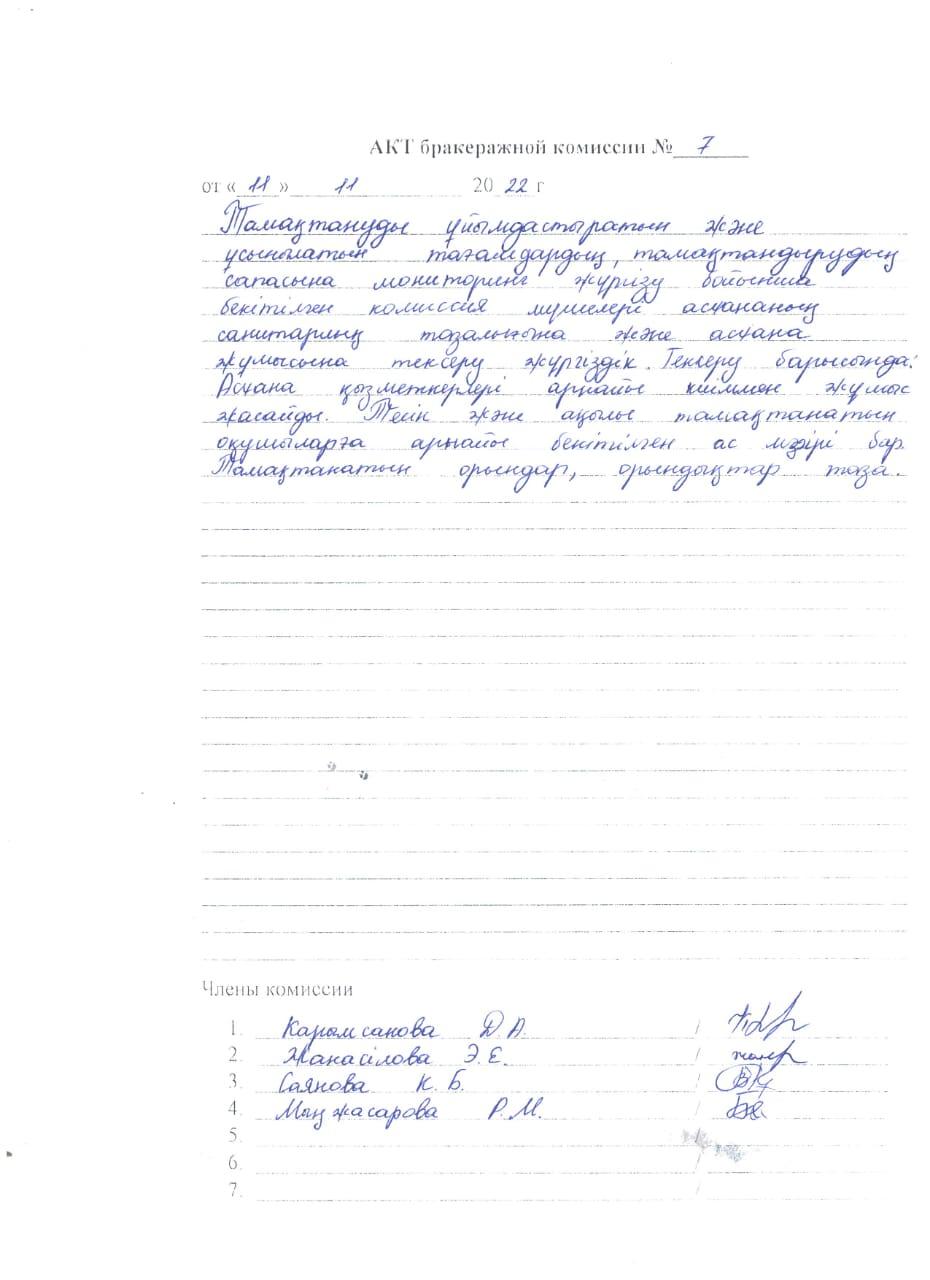 АКТ бракеражной комиссии № 7
от « 11 » 11 20 22 г
Тамақтануды ұйымдастыратын және
ұсынатын тағамдардың, тамақтандырудың
сапасына мониторинг жүргізу бойынша
бекітілген комиссия мүшелері асхананың
санитариялық тазалығына және асхана
жұмысына тексеру жүргіздік. Тексеру барысында:
Асхана қызметкерлері арнайы киіммен жұмыс
жасайды. Тегін және ақылы тамақтанатын
оқушыларға арнайы бекітілген ас мәзірі бар.
Тамақтанатын орындар, орындықтар таза.
Члены комиссии
1. Карымсакова Д.А. /
2. Жанасілова Э.Е. /
3. Саянова К.Б. /
4. Мыңжасарова Р.М. /
5. /
6. /
7. /